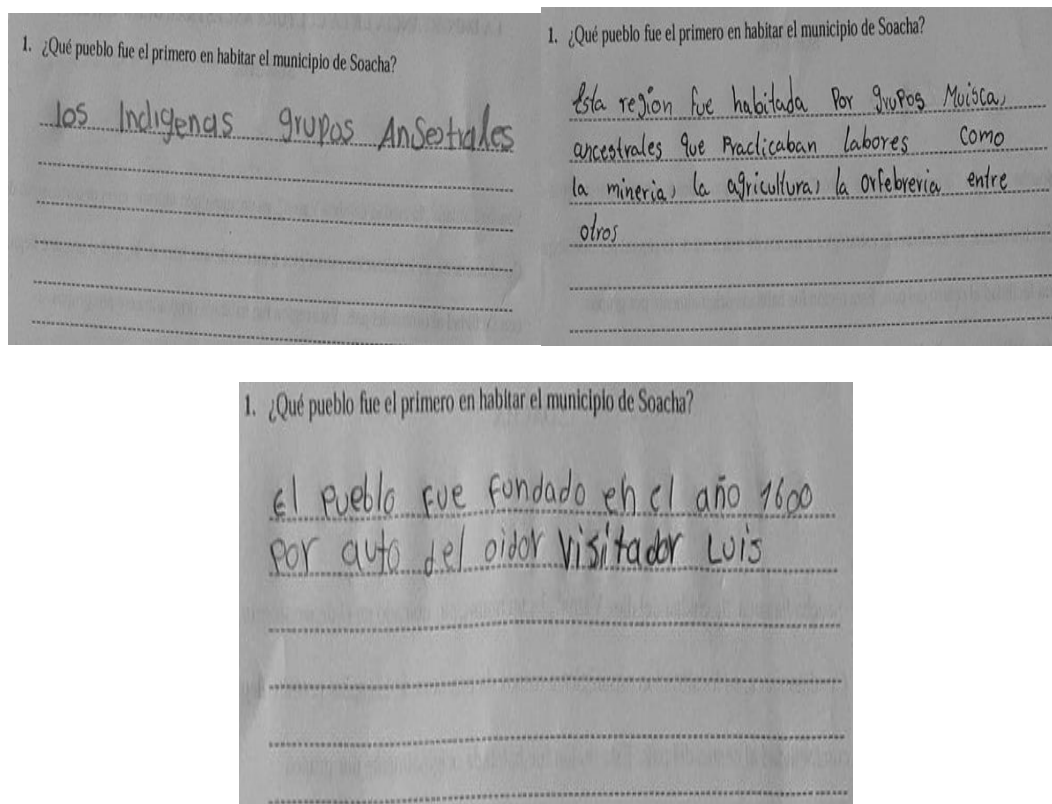 1. ¿Qué pueblo fue el primero en habitar el municipio de Soacha?
los Indigenas grupos Ansestrales
1. ¿Qué pueblo fue el primero en habitar el municipio de Soacha?
Esta region fue habitada Por grupos Muisca,
ancestrales que Practicaban labores como
la mineria, la agricultura, la orfebreria entre
otros
1. ¿Qué pueblo fue el primero en habitar el municipio de Soacha?
El pueblo fue fundado en el año 1600
por auto del oidor visitador Luis